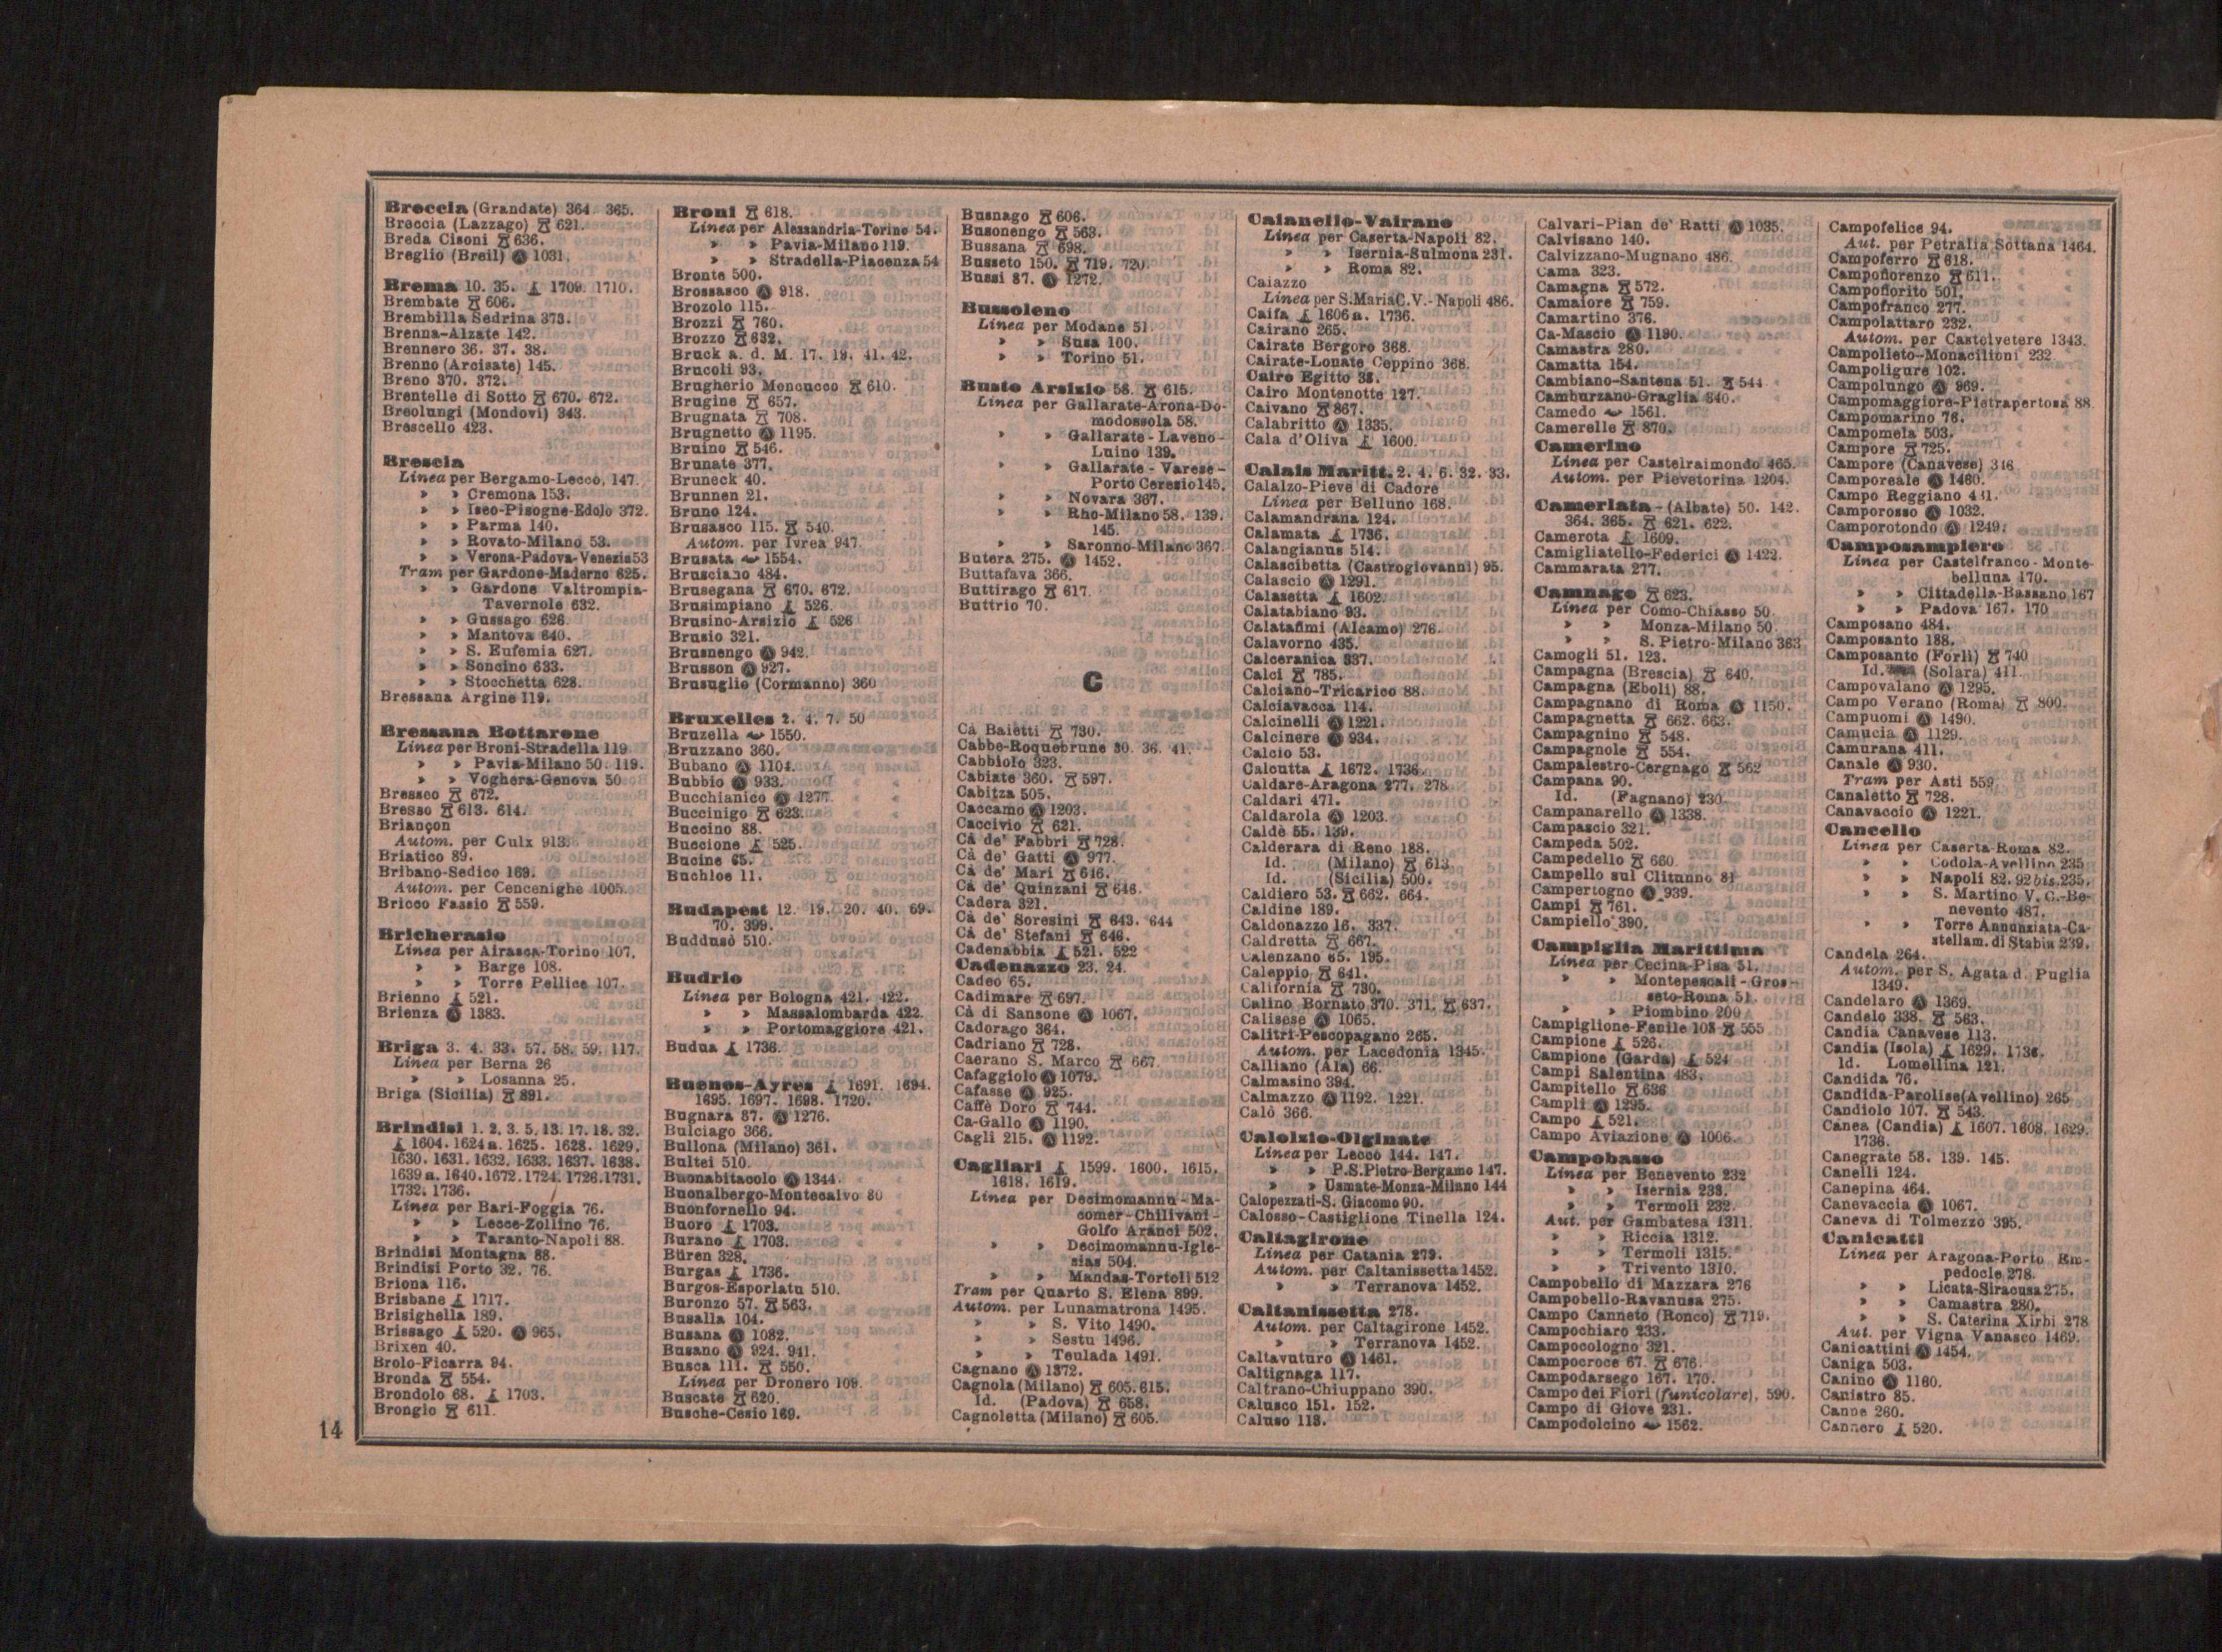 Breccia (Grandate) 364. 365.
Breccia (Lazzago) 621.
Breda Cisoni 636.
Breglio (Breil) 1031.
Brema 10. 35. 1709. 1710.
Brembate 606.
Brembilla Sedrina 373.
Brenna-Alzate 142.
Brennero 36. 37. 38.
Brenno (Arcisate) 145.
Breno 370. 372.
Brentelle di Sotto 670. 672.
Breolungi (Mondovi) 343.
Brescello 423.
Brescia
Linea per Bergamo-Lecco, 147.
» » Cremona 153.
» » Iseo-Pisogne-Edolo 372.
» » Parma 140.
» » Rovato-Milano 53.
» » Verona-Padova-Venezia 53
Tram per Gardone-Maderno 625.
» » Gardone Valtrompia-
Tavernole 632.
» » Gussago 626.
» » Mantova 640.
» » S. Eufemia 627.
» » Soncino 633.
» » Stocchetta 628.
Bressana Argine 119.
Bressana Bottarone
Linea per Broni-Stradella 119
» » Pavia-Milano 50. 119.
» » Voghera-Genova 50
Bresseo 672.
Bresso 613. 614.
Briançon
Autom. per Oulx 913.
Briatico 89.
Bribano-Sedico 169.
Autom. per Cencenighe 1005.
Bricco Fassio 559.
Bricherasio
Linea per Airasca-Torino 107.
» » Barge 108.
» » Torre Pellice 107.
Brienno 521.
Brienza 1383.
Briga 3. 4. 33. 57. 58. 59. 117.
Linea per Berna 26
» » Losanna 25.
Briga (Sicilia) 891.
Brindisi 1. 2. 3. 5. 13. 17. 18. 32.
1604. 1624 a. 1625. 1628. 1629.
1630. 1631. 1632. 1633. 1637. 1638.
1639 a. 1640. 1672. 1724. 1726. 1731.
1732. 1736.
Linea per Bari-Foggia 76.
» » Lecce-Zollino 76.
» » Taranto-Napoli 88.
Brindisi Montagna 88.
Brindisi Porto 32. 76.
Briona 116.
Brisbane 1717.
Brisighella 189.
Brissago 520. 965.
Brixen 40.
Brolo-Ficarra 94.
Bronda 554.
Brondolo 68. 1703.
Brongio 611.
14
Broni 618.
Linea per Alessandria-Torino 54.
» » Pavia-Milano 119.
» » Stradella-Piacenza 54
Bronte 500.
Brossasco 918.
Brozolo 115.
Brozzi 760.
Brozzo 632.
Bruck a. d. M. 17. 19. 41. 42.
Brucoli 93.
Brugherio Moncucco 610.
Brugine 657.
Brugnata 708.
Brugnetto 1195.
Bruino 546.
Brunate 377.
Bruneck 40.
Brunnen 21.
Bruno 124.
Brusasco 115. 540.
Autom. per Ivrea 947.
Brusata 1554.
Brusciano 484.
Brusegana 670. 672.
Brusimpiano 526.
Brusino-Arsizio 526
Brusio 321.
Brusnengo 942.
Brusson 927.
Brusuglio (Cormanno) 360
Bruxelles 2. 4. 7. 50
Bruzella 1550.
Bruzzano 360.
Bubano 1104.
Bubbio 933.
Bucchianico 1277.
Buccinigo 623.
Buccino 88.
Buccione 525.
Bucine 65.
Buchloe 11.
Budapest 12. 19. 20. 40. 69.
70. 399.
Buddusò 510.
Budrio
Linea per Bologna 421. 422.
» » Massalombarda 422.
» » Portomaggiore 421.
Budua 1736.
Buenos-Ayres 1691. 1694.
1695. 1697. 1698. 1720.
Bugnara 87. 1276.
Bulciago 366.
Bullona (Milano) 361.
Bultei 510.
Buonabitacolo 1344.
Buonalbergo-Montecalvo 80
Buonfornello 94.
Buoro 1703.
Burano 1703.
Büren 328.
Burgas 1736.
Burgos-Esporlatu 510.
Buronzo 57. 563.
Busalla 104.
Busana 1082.
Busano 924. 941.
Busca 111. 550.
Linea per Dronero 109.
Buscate 620.
Busche-Cesio 169.
Busnago 606.
Busonengo 563.
Bussana 698.
Busseto 150. 719. 720.
Bussi 87. 1272.
Bussoleno
Linea per Modane 51.
» » Susa 100.
» » Torino 51.
Busto Arsizio 58. 615.
Linea per Gallarate-Arona-Do-
modossola 58.
» » Gallarate - Laveno -
Luino 139.
» » Gallarate - Varese -
Porto Ceresio 145.
» » Novara 367.
» » Rho-Milano 58. 139.
145.
» » Saronno-Milano 367.
Butera 275. 1452.
Buttafava 366.
Buttirago 617.
Buttrio 70.
C
Cà Baietti 730.
Cabbe-Roquebrune 30. 36. 41.
Cabbiolo 323.
Cabiate 360. 597.
Cabitza 505.
Caccamo 1203.
Caccivio 621.
Cà de' Fabbri 728.
Cà de' Gatti 977.
Cà de' Mari 646.
Cà de' Quinzani 646.
Cadera 321.
Cà de' Soresini 643. 644
Cà de' Stefani 646.
Cadenabbia 521. 522
Cadenazzo 23. 24.
Cadeo 65.
Cadimare 697.
Cà di Sansone 1067.
Cadorago 364.
Cadriano 728.
Caerano S. Marco 667.
Cafaggiolo 1079.
Cafasse 925.
Caffè Doro 744.
Ca-Gallo 1190.
Cagli 215. 1192.
Cagliari 1599. 1600. 1615.
1618. 1619.
Linea per Decimomannu - Ma-
comer - Chilivani -
Golfo Aranci 502.
» » Decimomannu-Igle-
sias 504.
» » Mandas-Tortolì 512
Tram per Quarto S. Elena 899.
Autom. per Lunamatrona 1495.
» » S. Vito 1490.
» » Sestu 1496.
» » Teulada 1491.
Cagnano 1372.
Cagnola (Milano) 605. 615.
Id. (Padova) 658.
Cagnoletta (Milano) 605.
Caianello-Vairano
Linea per Caserta-Napoli 82.
» » Isernia-Sulmona 231.
» » Roma 82.
Caiazzo
Linea per S. Maria C. V. - Napoli 486.
Caifa 1606 a. 1736.
Cairano 265.
Cairate Bergoro 368.
Cairate-Lonate Ceppino 368.
Cairo Egitto 38.
Cairo Montenotte 127.
Caivano 867.
Calabritto 1335.
Cala d'Oliva 1600.
Calais Maritt. 2. 4. 6. 32. 33.
Calalzo-Pieve di Cadore
Linea per Belluno 168.
Calamandrana 124.
Calamata 1736.
Calangianus 514.
Calascibetta (Castrogiovanni) 95.
Calascio 1291.
Calasetta 1602.
Calatabiano 93.
Calatafimi (Alcamo) 276.
Calavorno 435.
Calceranica 337.
Calci 785.
Calciano-Tricarico 88.
Calciavacca 114.
Calcinelli 1221.
Calcinere 934.
Calcio 53.
Calcutta 1672. 1736.
Caldare-Aragona 277. 278
Caldari 471.
Caldarola 1203.
Caldè 55. 139.
Calderara di Reno 188.
Id. (Milano) 613.
Id. (Sicilia) 500.
Caldiero 53. 662. 664.
Caldine 189.
Caldonazzo 16. 337.
Caldretta 667.
Calenzano 65. 195.
Caleppio 641.
California 730.
Calino Bornato 370. 371. 637.
Calisese 1065.
Calitri-Pescopagano 265.
Autom. per Lacedonia 1345.
Calliano (Ala) 66.
Calmasino 394.
Calmazzo 1192. 1221.
Calò 366.
Calolzio-Olginate
Linea per Lecco 144. 147.
» » P. S. Pietro-Bergamo 147.
» » Usmate-Monza-Milano 144
Calopezzati-S. Giacomo 90.
Calosso-Castiglione Tinella 124.
Caltagirone
Linea per Catania 279.
Autom. per Caltanissetta 1452.
» » Terranova 1452.
Caltanissetta 278.
Autom. per Caltagirone 1452.
» » Terranova 1452.
Caltavuturo 1461.
Caltignaga 117.
Caltrano-Chiuppano 390.
Calusco 151. 152.
Caluso 113.
Calvari-Pian de' Ratti 1035.
Calvisano 140.
Calvizzano-Mugnano 486.
Cama 323.
Camagna 572.
Camaiore 759.
Camartino 376.
Ca-Mascio 1190.
Camastra 280.
Camatta 154.
Cambiano-Santena 51. 544.
Camburzano-Graglia 340.
Camedo 1561.
Camerelle 870.
Camerino
Linea per Castelraimondo 465.
Autom. per Pievetorina 1204.
Camerlata - (Albate) 50. 142.
364. 365. 621. 622.
Camerota 1609.
Camigliatello-Federici 1422.
Cammarata 277.
Camnago 623.
Linea per Como-Chiasso 50.
» » Monza-Milano 50.
» » S. Pietro-Milano 363
Camogli 51. 123.
Campagna (Brescia) 640.
Campagna (Eboli) 88.
Campagnano di Roma 1150.
Campagnetta 662. 663.
Campagnino 548.
Campagnole 554.
Campalestro-Cergnago 562
Campana 90.
Id. (Fagnano) 230.
Campanarello 1338.
Campascio 321.
Campeda 502.
Campedello 660.
Campello sul Clitunno 81
Campertogno 939.
Campi 761.
Campiello 390.
Campiglia Marittima
Linea per Cecina-Pisa 51.
» » Montepescali - Gros-
seto-Roma 51.
» » Piombino 200
Campiglione-Fenile 108 555
Campione 526.
Campione (Garda) 524
Campi Salentina 483.
Campitello 636
Campli 1295.
Campo 521.
Campo Aviazione 1006.
Campobasso
Linea per Benevento 232
» » Isernia 233.
» » Termoli 232.
Aut. per Gambatesa 1311.
» » Riccia 1312.
» » Termoli 1315.
» » Trivento 1310.
Campobello di Mazzara 276
Campobello-Ravanusa 275.
Campo Canneto (Ronco) 719.
Campochiaro 233.
Campocologno 321.
Campocroce 67. 676.
Campodarsego 167. 170.
Campo dei Fiori (funicolare). 590.
Campo di Giove 231.
Campodolcino 1562.
Campofelice 94.
Aut. per Petralia Sottana 1464.
Campoferro 618.
Campofiorenzo 611.
Campofiorito 501.
Campofranco 277.
Campolattaro 232.
Autom. per Castelvetere 1343.
Campolieto-Monacilioni 232
Campoligure 102.
Campolungo 969.
Campomaggiore-Pietrapertosa 88
Campomarino 76.
Campomela 503.
Campore 725.
Campore (Canavese) 346
Camporeale 1460.
Campo Reggiano 431.
Camporosso 1032.
Camporotondo 1249.
Camposampiero
Linea per Castelfranco - Monte-
belluna 170.
» » Cittadella-Bassano 167
» » Padova 167. 170
Camposano 484.
Camposanto 188.
Camposanto (Forlì) 740
Id. (Solara) 411.
Campovalano 1295.
Campo Verano (Roma) 800.
Campuomi 1490.
Camucia 1129.
Camurana 411.
Canale 930.
Tram per Asti 559.
Canaletto 728.
Canavaccio 1221.
Cancello
Linea per Caserta-Roma 82.
» » Codola-Avellino 235
» » Napoli 82. 92 bis. 235.
» » S. Martino V. C.-Be-
nevento 487.
» » Torre Annunziata-Ca-
stellam. di Stabia 239.
Candela 264.
Autom. per S. Agata d. Puglia
1349.
Candelaro 1369.
Candelo 338. 563.
Candia Canavese 113.
Candia (Isola) 1629. 1736.
Id. Lomellina 121.
Candida 76.
Candida-Parolise (Avellino) 265
Candiolo 107. 543.
Canea (Candia) 1607. 1608. 1629.
1736.
Canegrate 58. 139. 145.
Canelli 124.
Canepina 464.
Canevaccia 1067.
Caneva di Tolmezzo 395.
Canicattì
Linea per Aragona-Porto Em-
pedocle 278.
» » Licata-Siracusa 275.
» » Camastra 280.
» » S. Caterina Xirbi 278
Aut. per Vigna Vanasco 1469.
Canicattini 1454.
Caniga 503.
Canino 1160.
Canistro 85.
Canne 260.
Cannero 520.